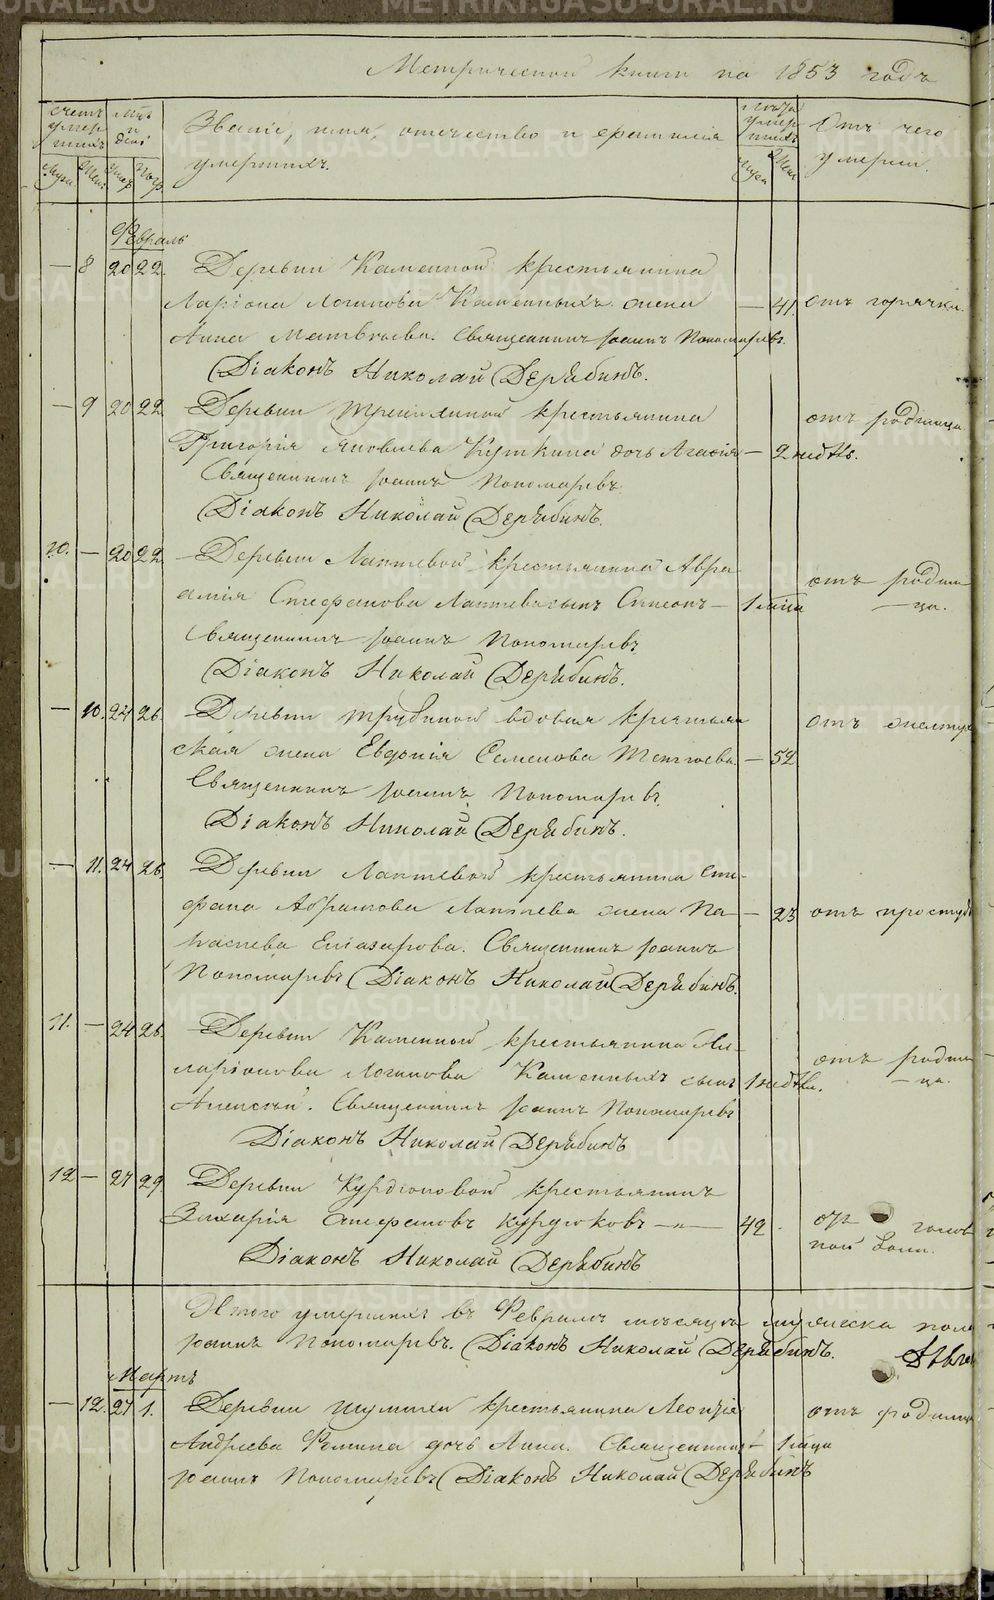 Метрической книги на 1853 годъ
Счетъ умершихъ
Мѣс. и дни
Званіе, имя, отчество и фамилія умершихъ.
Лѣта умершихъ
Отъ чего умерли.
Муж. Жен. Умер. Погр.
Муж. Жен.
Февраль
— 8 20 22. Деревни Каменной крестьянина
Ларіона Логинова Каменныхъ жена — 41. отъ горячки.
Анна Матвѣева. Священникъ Іоаннъ Пономаревъ.
Діаконъ Николай Дерябинъ.
— 9 20 22 Деревни крестьянина отъ родимца
Григорія Яковлева Куткина дочь Агафія — 2 недѣль.
Священникъ Іоаннъ Пономаревъ
Діаконъ Николай Дерябинъ.
10. — 20 22 Деревни Лаптевой крестьянина Авра-
амія Стефанова Лаптева сынъ Симеонъ — 1 мѣсяца отъ родим-
ца.
Священникъ Іоаннъ Пономаревъ
Діаконъ Николай Дерябинъ.
— 10. 24 26. Деревни Трубиной вдовая крестьян-
ская жена Евдокія Семенова — 52
Священникъ Іоаннъ Пономаревъ.
Діаконъ Николай Дерябинъ.
— 11. 24 26. Деревни Лаптевой крестьянина Сте-
фана Абрамова Лаптева жена Па- — 23 отъ простуды
Елизарова. Священникъ Іоаннъ
Пономаревъ Діаконъ Николай Дерябинъ.
11. — 24 26. Деревни Каменной крестьянина Ил-
ларіонова Логинова Каменныхъ сынъ 1 недѣли. отъ родим-
ца.
Алексѣй. Священникъ Іоаннъ Пономаревъ
Діаконъ Николай Дерябинъ
12 — 27 29 Деревни Курдюковой крестьянинъ
Захарія Стефановъ Курдюковъ — 42. голов-
ной боли.
Діаконъ Николай Дерябинъ
Итого умершихъ въ Февралѣ мѣсяцѣ мужеска пола
Іоаннъ Пономаревъ. Діаконъ Николай Дерябинъ.
Мартъ
— 12. 27 1. Деревни крестьянина Леонтія отъ родимца
Андреева Фомина дочь Анна. Священникъ — 1 мѣсяца
Іоаннъ Пономаревъ Діаконъ Николай Дерябинъ
METRIKI.GASO-URAL.RU